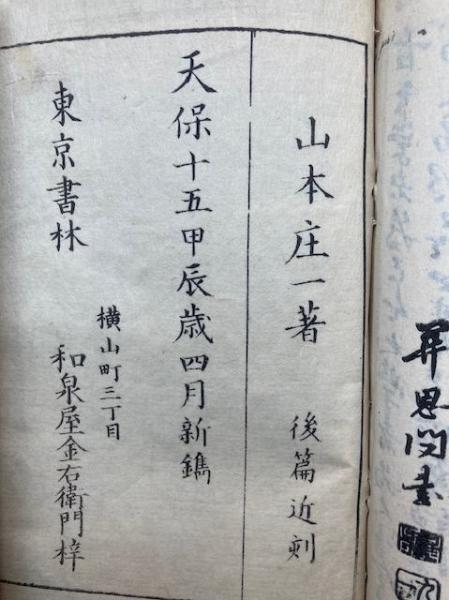 山本庄一著 後篇近刻
天保十五甲辰歳四月新鐫
東京書林 横山町三丁目
和泉屋金右衛門梓